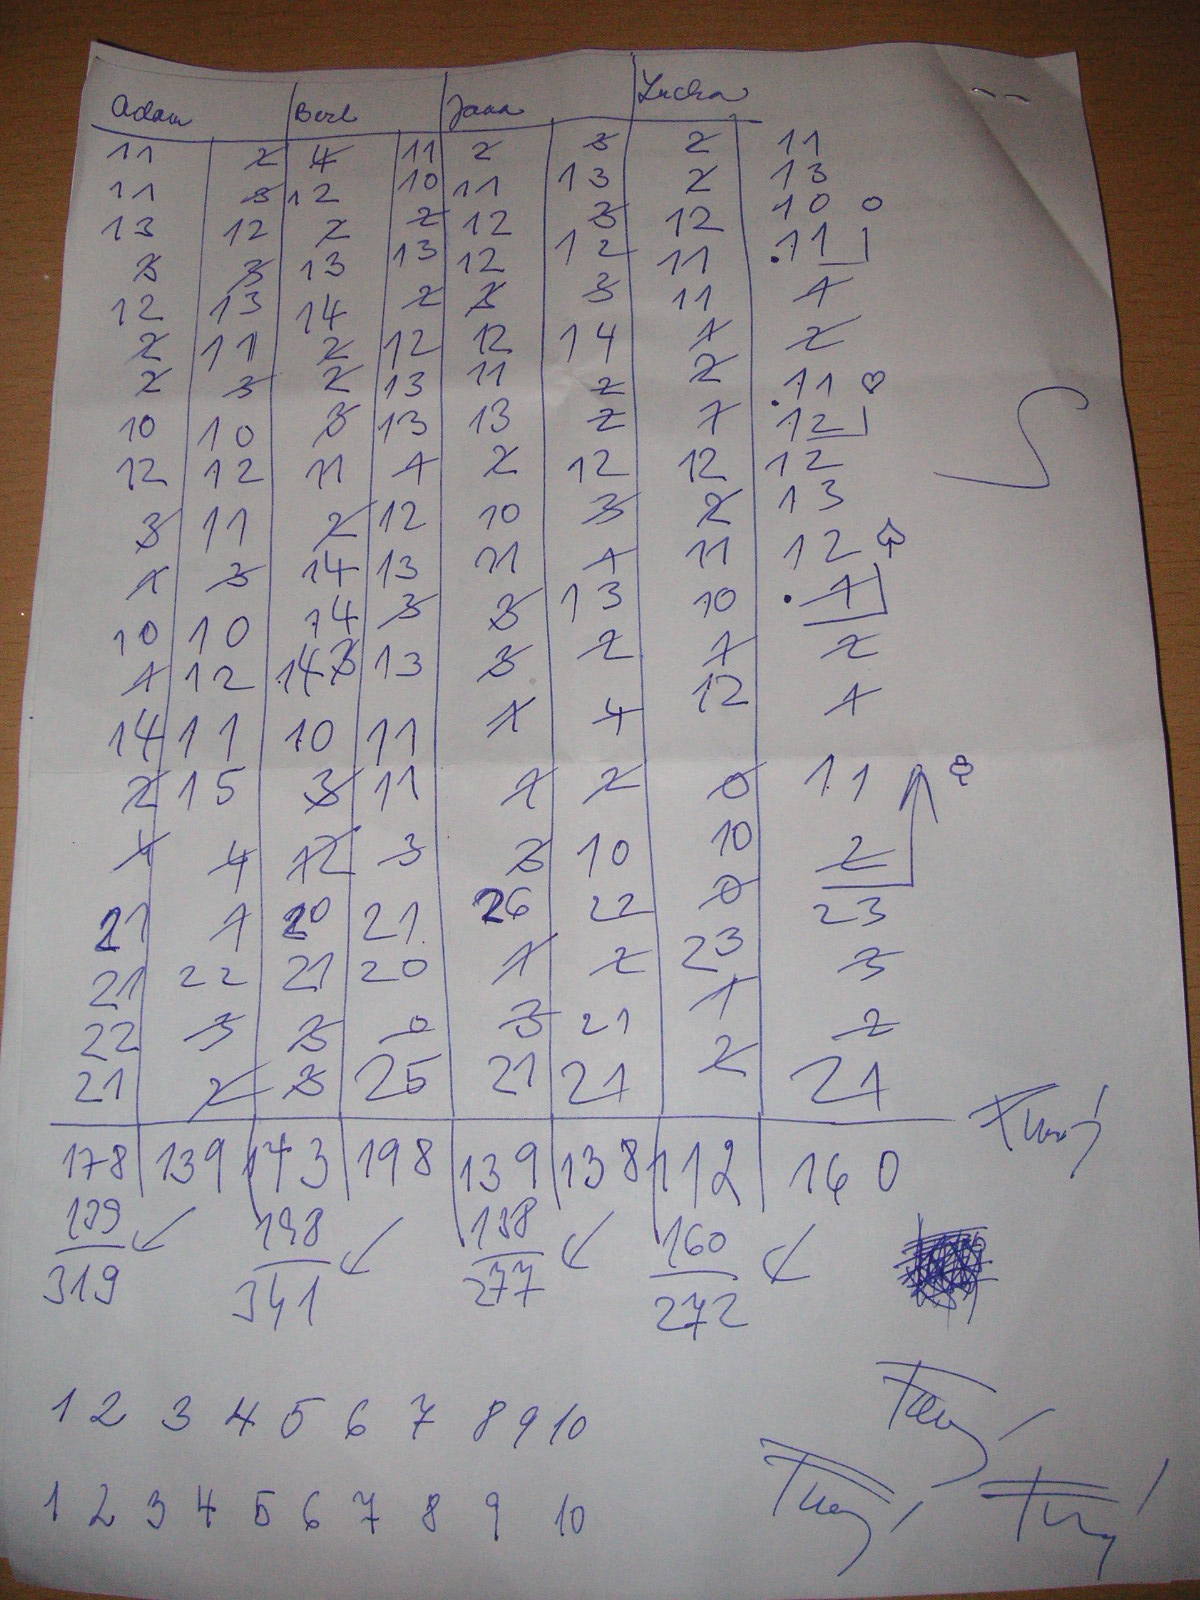 Adam Bert Jana Lucka
11 2 4 11 2 3 2 11
11 3 12 10 11 13 2 13
13 12 2 2 12 3 12 10
3 3 13 13 12 12 11 .11
12 13 14 2 3 3 11 1
2 11 2 12 12 14 1 2
2 3 2 13 11 2 2 .11
10 10 3 13 13 2 1 .12
12 12 11 1 2 12 12 12
3 11 2 12 10 3 2 13
1 3 14 13 11 1 11 12
10 10 14 3 3 13 10 .1
1 12 14 3 13 3 2 1 2
14 11 10 11 1 4 12 1
2 15 3 11 1 2 0 11
4 4 12 3 3 10 10 2
21 1 20 21 26 22 0 23
21 22 21 20 1 2 23 3
22 3 3 0 3 21 1 2
21 2 3 25 21 21 2 21
178 139 143 198 139 138 112 160
139 198 138 160
319 341 277 272
1 2 3 4 5 6 7 8 9 10
1 2 3 4 5 6 7 8 9 10